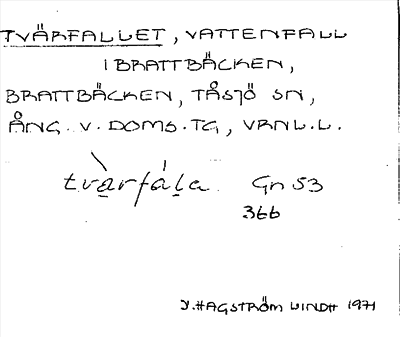 TVÄRFALLET, VATTENFALL
I BRATTBÄCKEN,
BRATTBÄCKEN, TÅSJÖ SN,
ÅNG. V. DOMS.TG, VRNL.L.
tvàrfála Gn 53
366
Y. HAGSTRÖM LINDH 1971